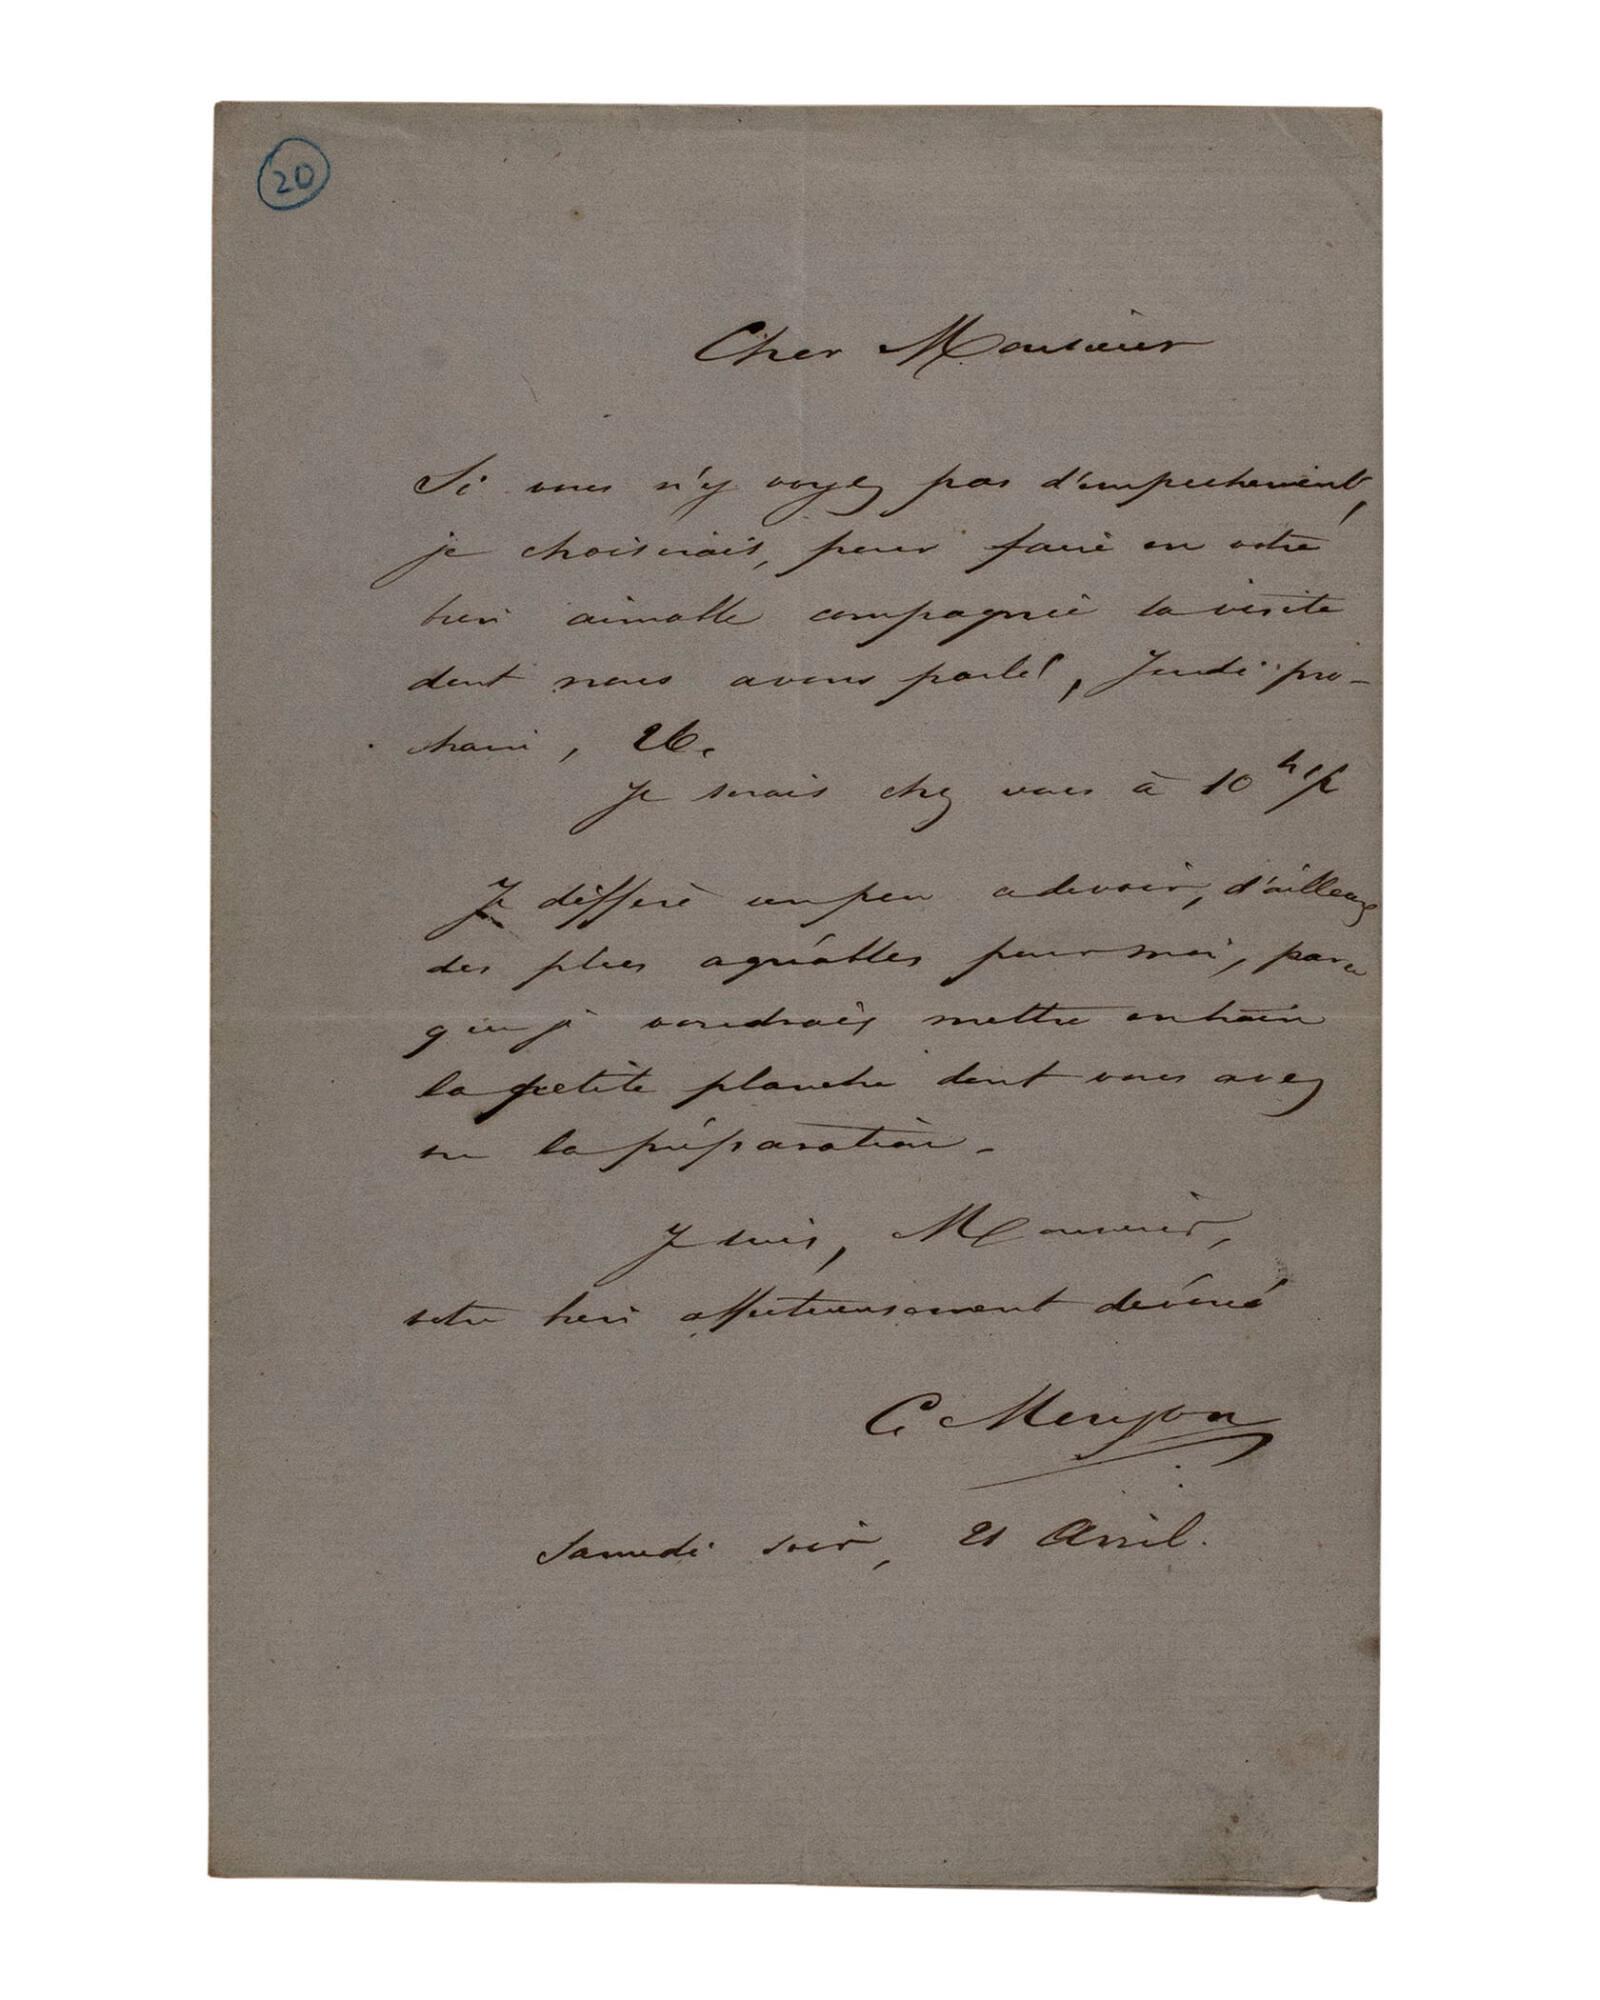 20
Cher Monsieur
Si vous n'y voyez pas d'empechement,
je choisirais, pour faire en votre
bien aimable compagnie la visite
dont nous avons parlé, Jeudi pro-
chain, 26.
Je serais chez vous à 10 h
Je diffère un peu devoir, d'ailleurs
des plus agréables pour moi, parce
que je voudrais mettre en train
la petite planche dont vous avez
vu la préparation.
Je suis, Monsieur,
votre bien affectueusement dévoué
C. Meryon
Samedi soir, 21 Avril.